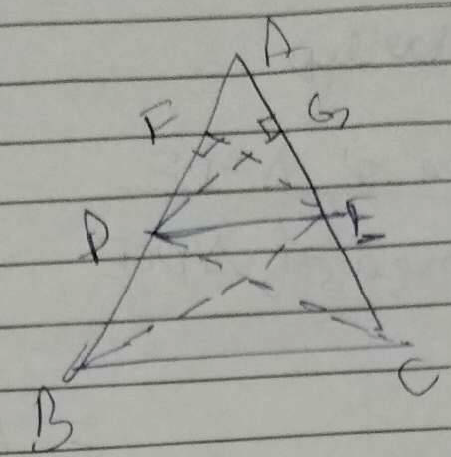 A
F G
D E
B C